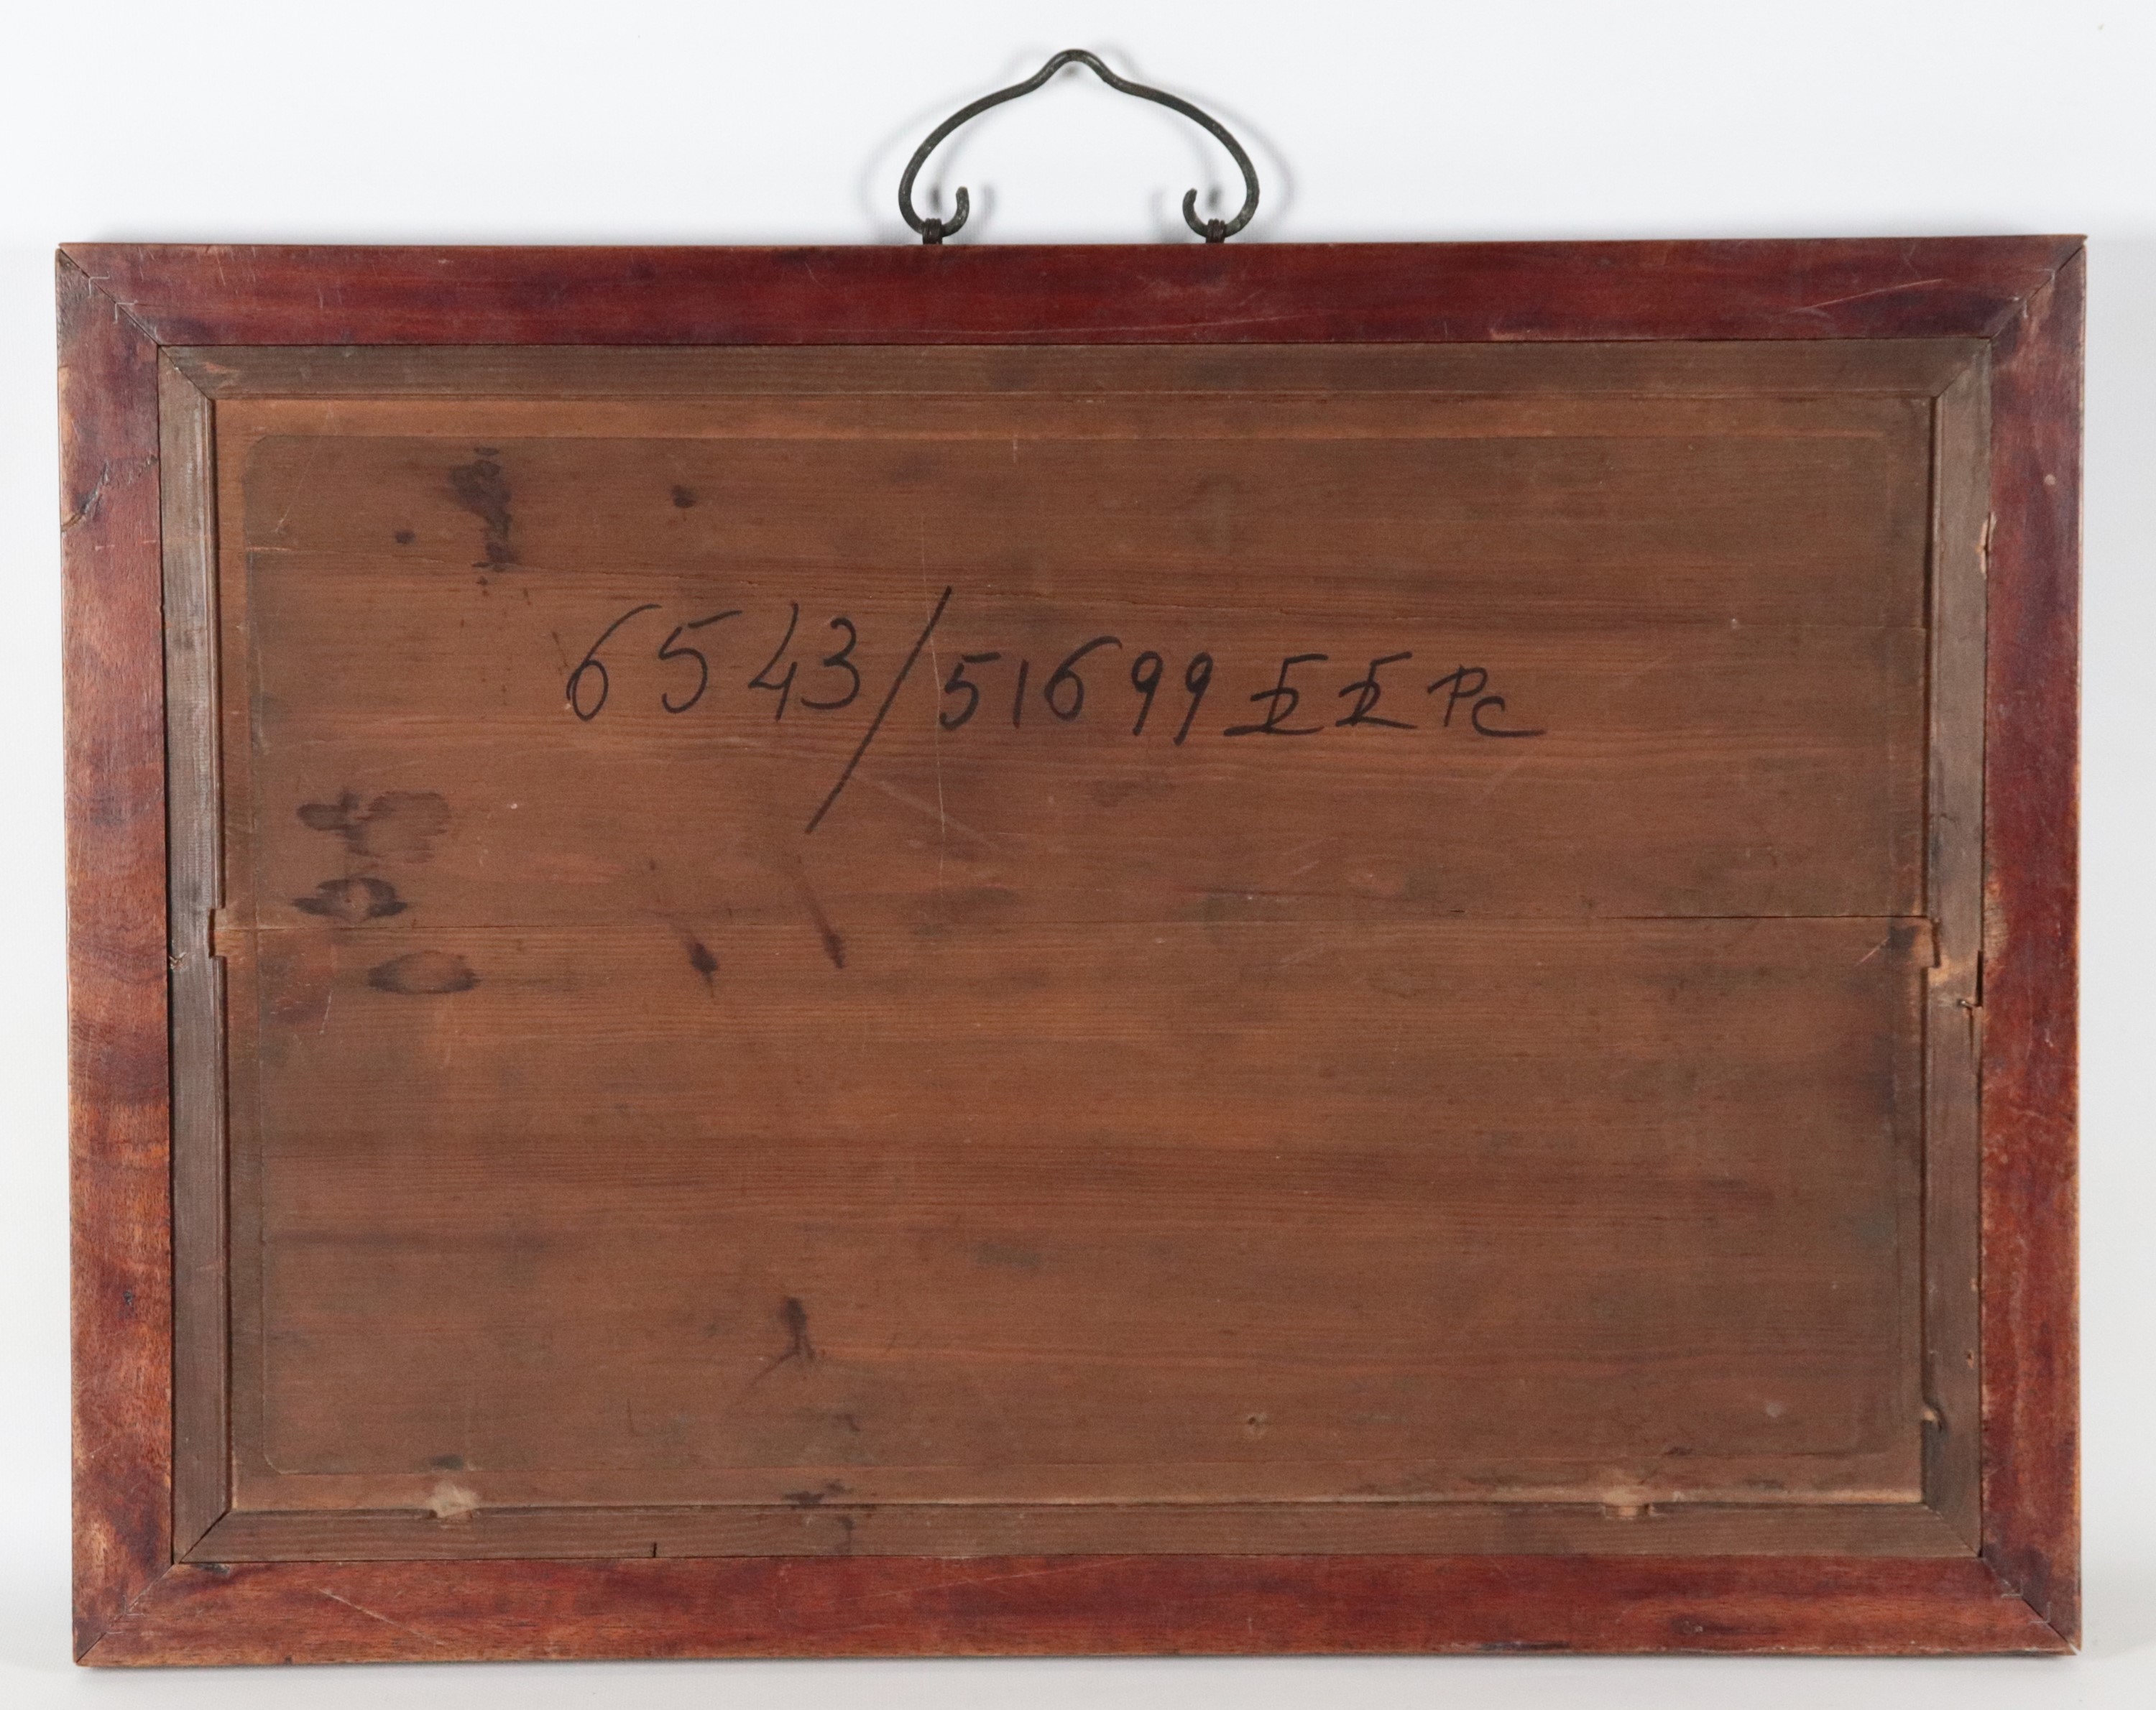 6543/51699 PC